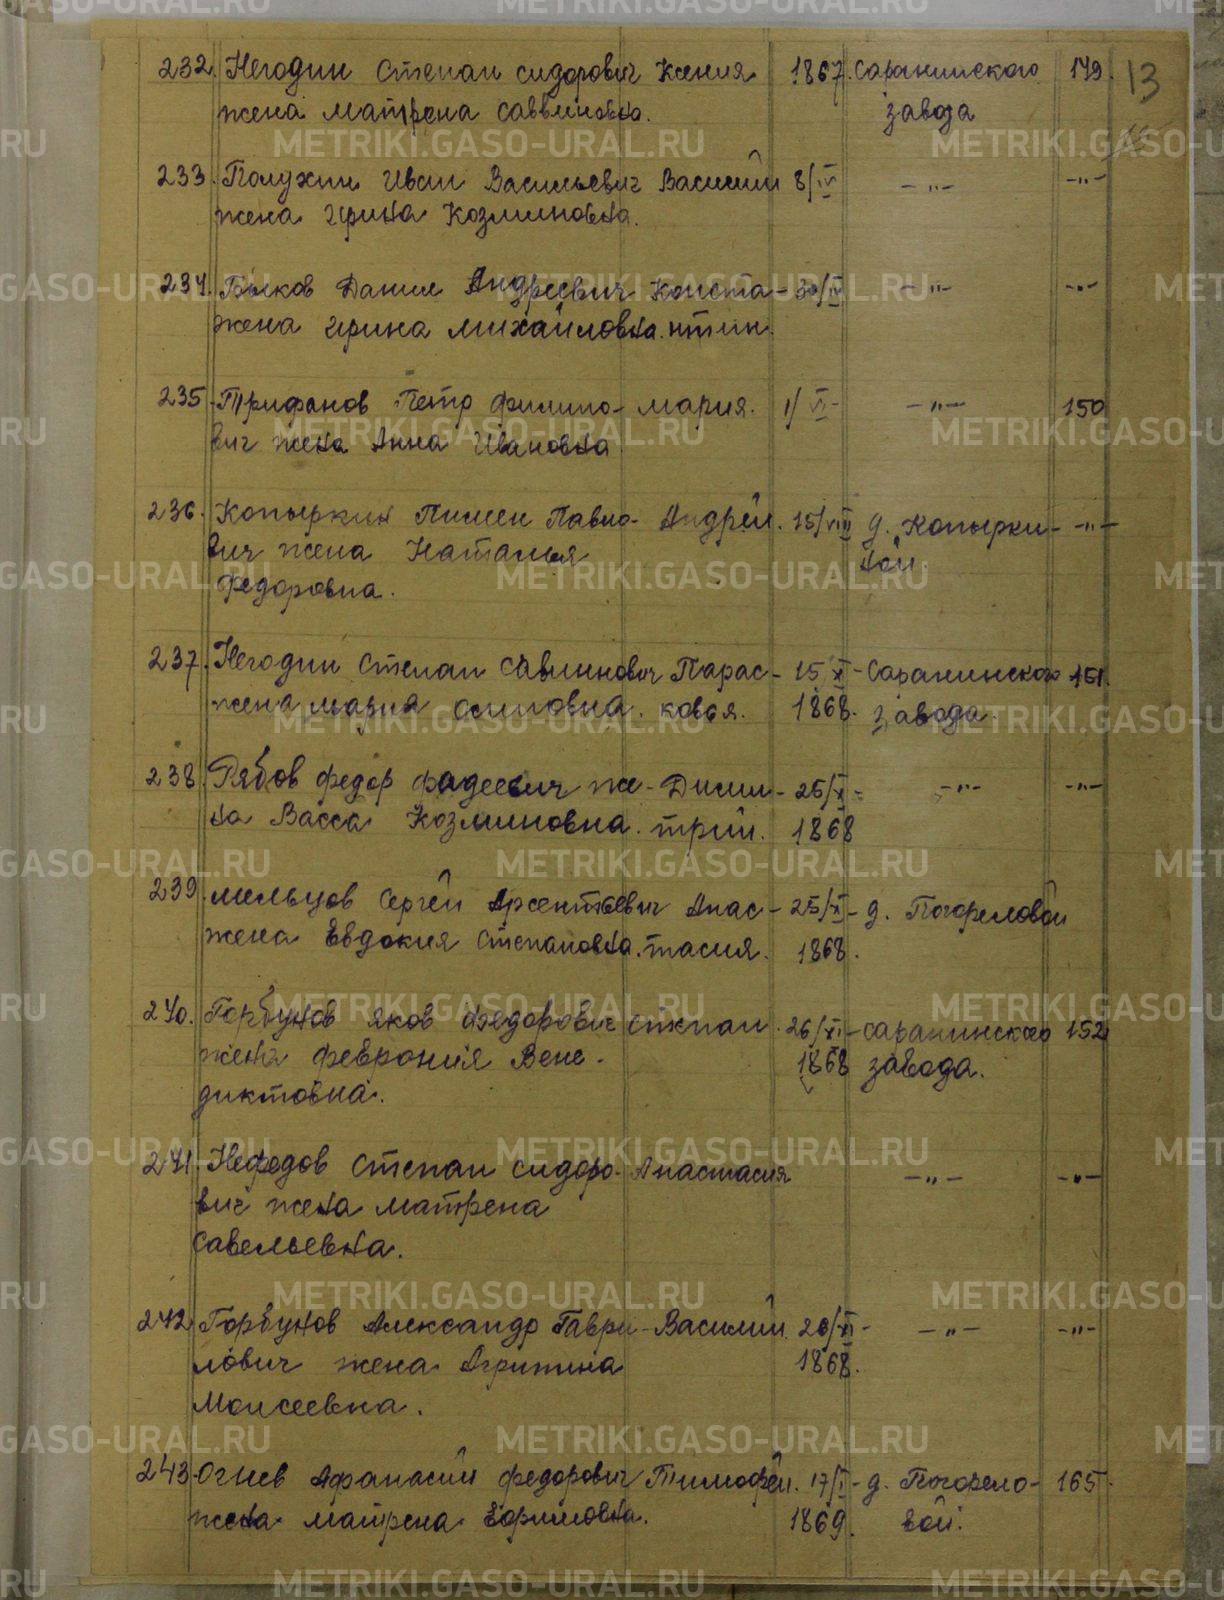 232. Негодин Степан Сидорович Ксения 1867. Саранинского 149. 13
жена Матрена Саввиновна. завода
233. Полухин Иван Васильевич Василий 8/IV -"- -"-
жена Ирина Козминовна.
234. Быков Данил Андреевич Конста- 30/IV -"- -"-
жена Ирина Михайловна. нтин.
235. Трифанов Петр Филипо- Мария. 1/VI- -"- 150
вич жена Анна Ивановна
236. Копыркин Пимен Павло- Андрей. 15/VIII д. Копырки- -"-
вич жена Наталья ной.
Федоровна.
237. Негодин Степан Савинович Парас- 15 XI- Саранинского 151.
жена Мария Осиповна. ковья. 1868. завода.
238. Рябов Федор Фадеевич же- Дими- 25/XI- -"- -"-
на Васса Козминовна. трий. 1868
239. Мельцов Сергей Арсентьевич Анас- 25/XI- д. Погореловой
жена Евдокия Степановна. тасия. 1868.
240. Горбунов Яков Федорович Степан. 26/XI- Саранинского 152
жена Феврония Вене- 1868 завода.
диктовна.
241. Нефедов Степан Сидоро- Анастасия -"- -"-
вич жена Матрена
Савельевна.
242. Горбунов Александр Гаври- Василий. 26/XI- -"- -"-
лович жена Агрипина 1868.
Моисеевна.
243. Огнев Афанасий Федорович Тимофей. 17/I- д. Погорело- 165.
жена Матрена Ефимовна. 1869. вой.
METRIKI.GASO-URAL.RU